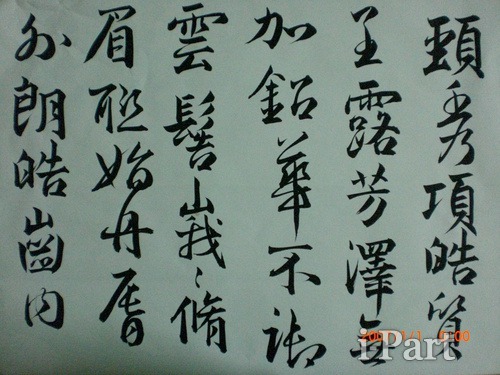 頸秀項皓質
呈露芳澤無
加鉛華不御
雲髻峩〻脩
眉聯娟丹脣
外朗皓齒内
iPart